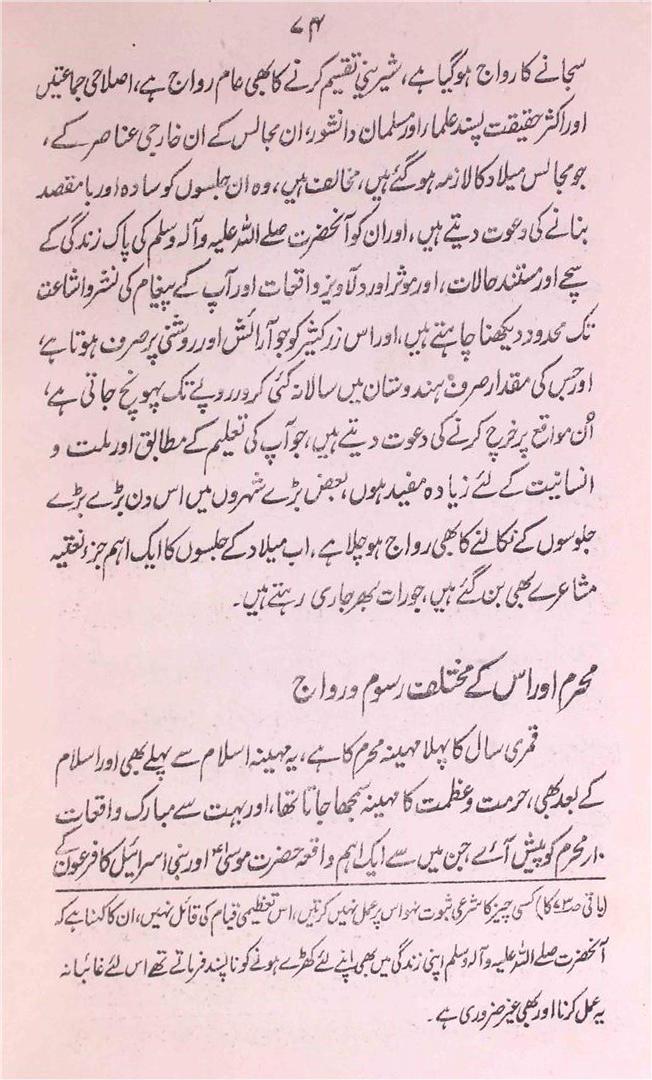 ۷۴
سجانے کا رواج ہوگیا ہے، شیرینی تقسیم کرنے کا بھی عام رواج ہے، اصلاحی جماعتیں
اور اکثر حقیقت پسند علماء اور مسلمان دانشور، ان مجالس کے ان خارجی عناصر کے،
جو مجالس میلاد کا لازمہ ہوگئے ہیں، مخالف ہیں، وہ ان جلسوں کو سادہ اور بامقصد
بنانے کی دعوت دیتے ہیں، اور ان کو آنحضرت صلے اللہ علیہ وآلہ وسلم کی پاک زندگی کے
سچے اور مستند حالات، اور موثر اور دلآویز واقعات اور آپ کے پیغام کی نشر و اشاعت
تک محدود دیکھنا چاہتے ہیں، اور اس زر کثیر کو جو آرائش اور روشنی پر صرف ہوتا ہے،
اور جس کی مقدار صرف ہندوستان میں سالانہ کئی کرور روپئے تک پہونچ جاتی ہے،
اُن مواقع پر خرچ کرنے کی دعوت دیتے ہیں، جو آپ کی تعلیم کے مطابق اور ملت و
انسانیت کے لئے زیادہ مفید ہوں، بعض بڑے شہروں میں اس دن بڑے بڑے
جلوسوں کے نکالنے کا بھی رواج ہو چلا ہے، اب میلاد کے جلسوں کا ایک اہم جزء نعتیہ
مشاعرے بھی بن گئے ہیں، جو رات بھر جاری رہتے ہیں۔
محرم اور اس کے مختلف رسوم و رواج
قمری سال کا پہلا مہینہ محرم کا ہے، یہ مہینہ اسلام سے پہلے بھی اور اسلام
کے بعد بھی، حرمت و عظمت کا مہینہ سمجھا جاتا تھا، اور بہت سے مبارک واقعات
۱۰ر محرم کو پیش آئے، جن میں سے ایک اہم واقعہ حضرت موسیٰؑ اور بنی اسرائیل کا فرعون کے
(باقی صـ۷۳ کا) کسی چیز کا شرعی ثبوت نہ ہو اس پر عمل نہیں کرتیں، اس تعظیمی قیام کی قائل نہیں، ان کا کہنا ہے کہ
آنحضرت صلے اللہ علیہ وآلہ وسلم اپنی زندگی میں بھی اپنے لئے کھڑے ہونے کو ناپسند فرماتے تھے اس لئے غائبانہ
یہ عمل کرنا اور بھی غیر ضروری ہے۔